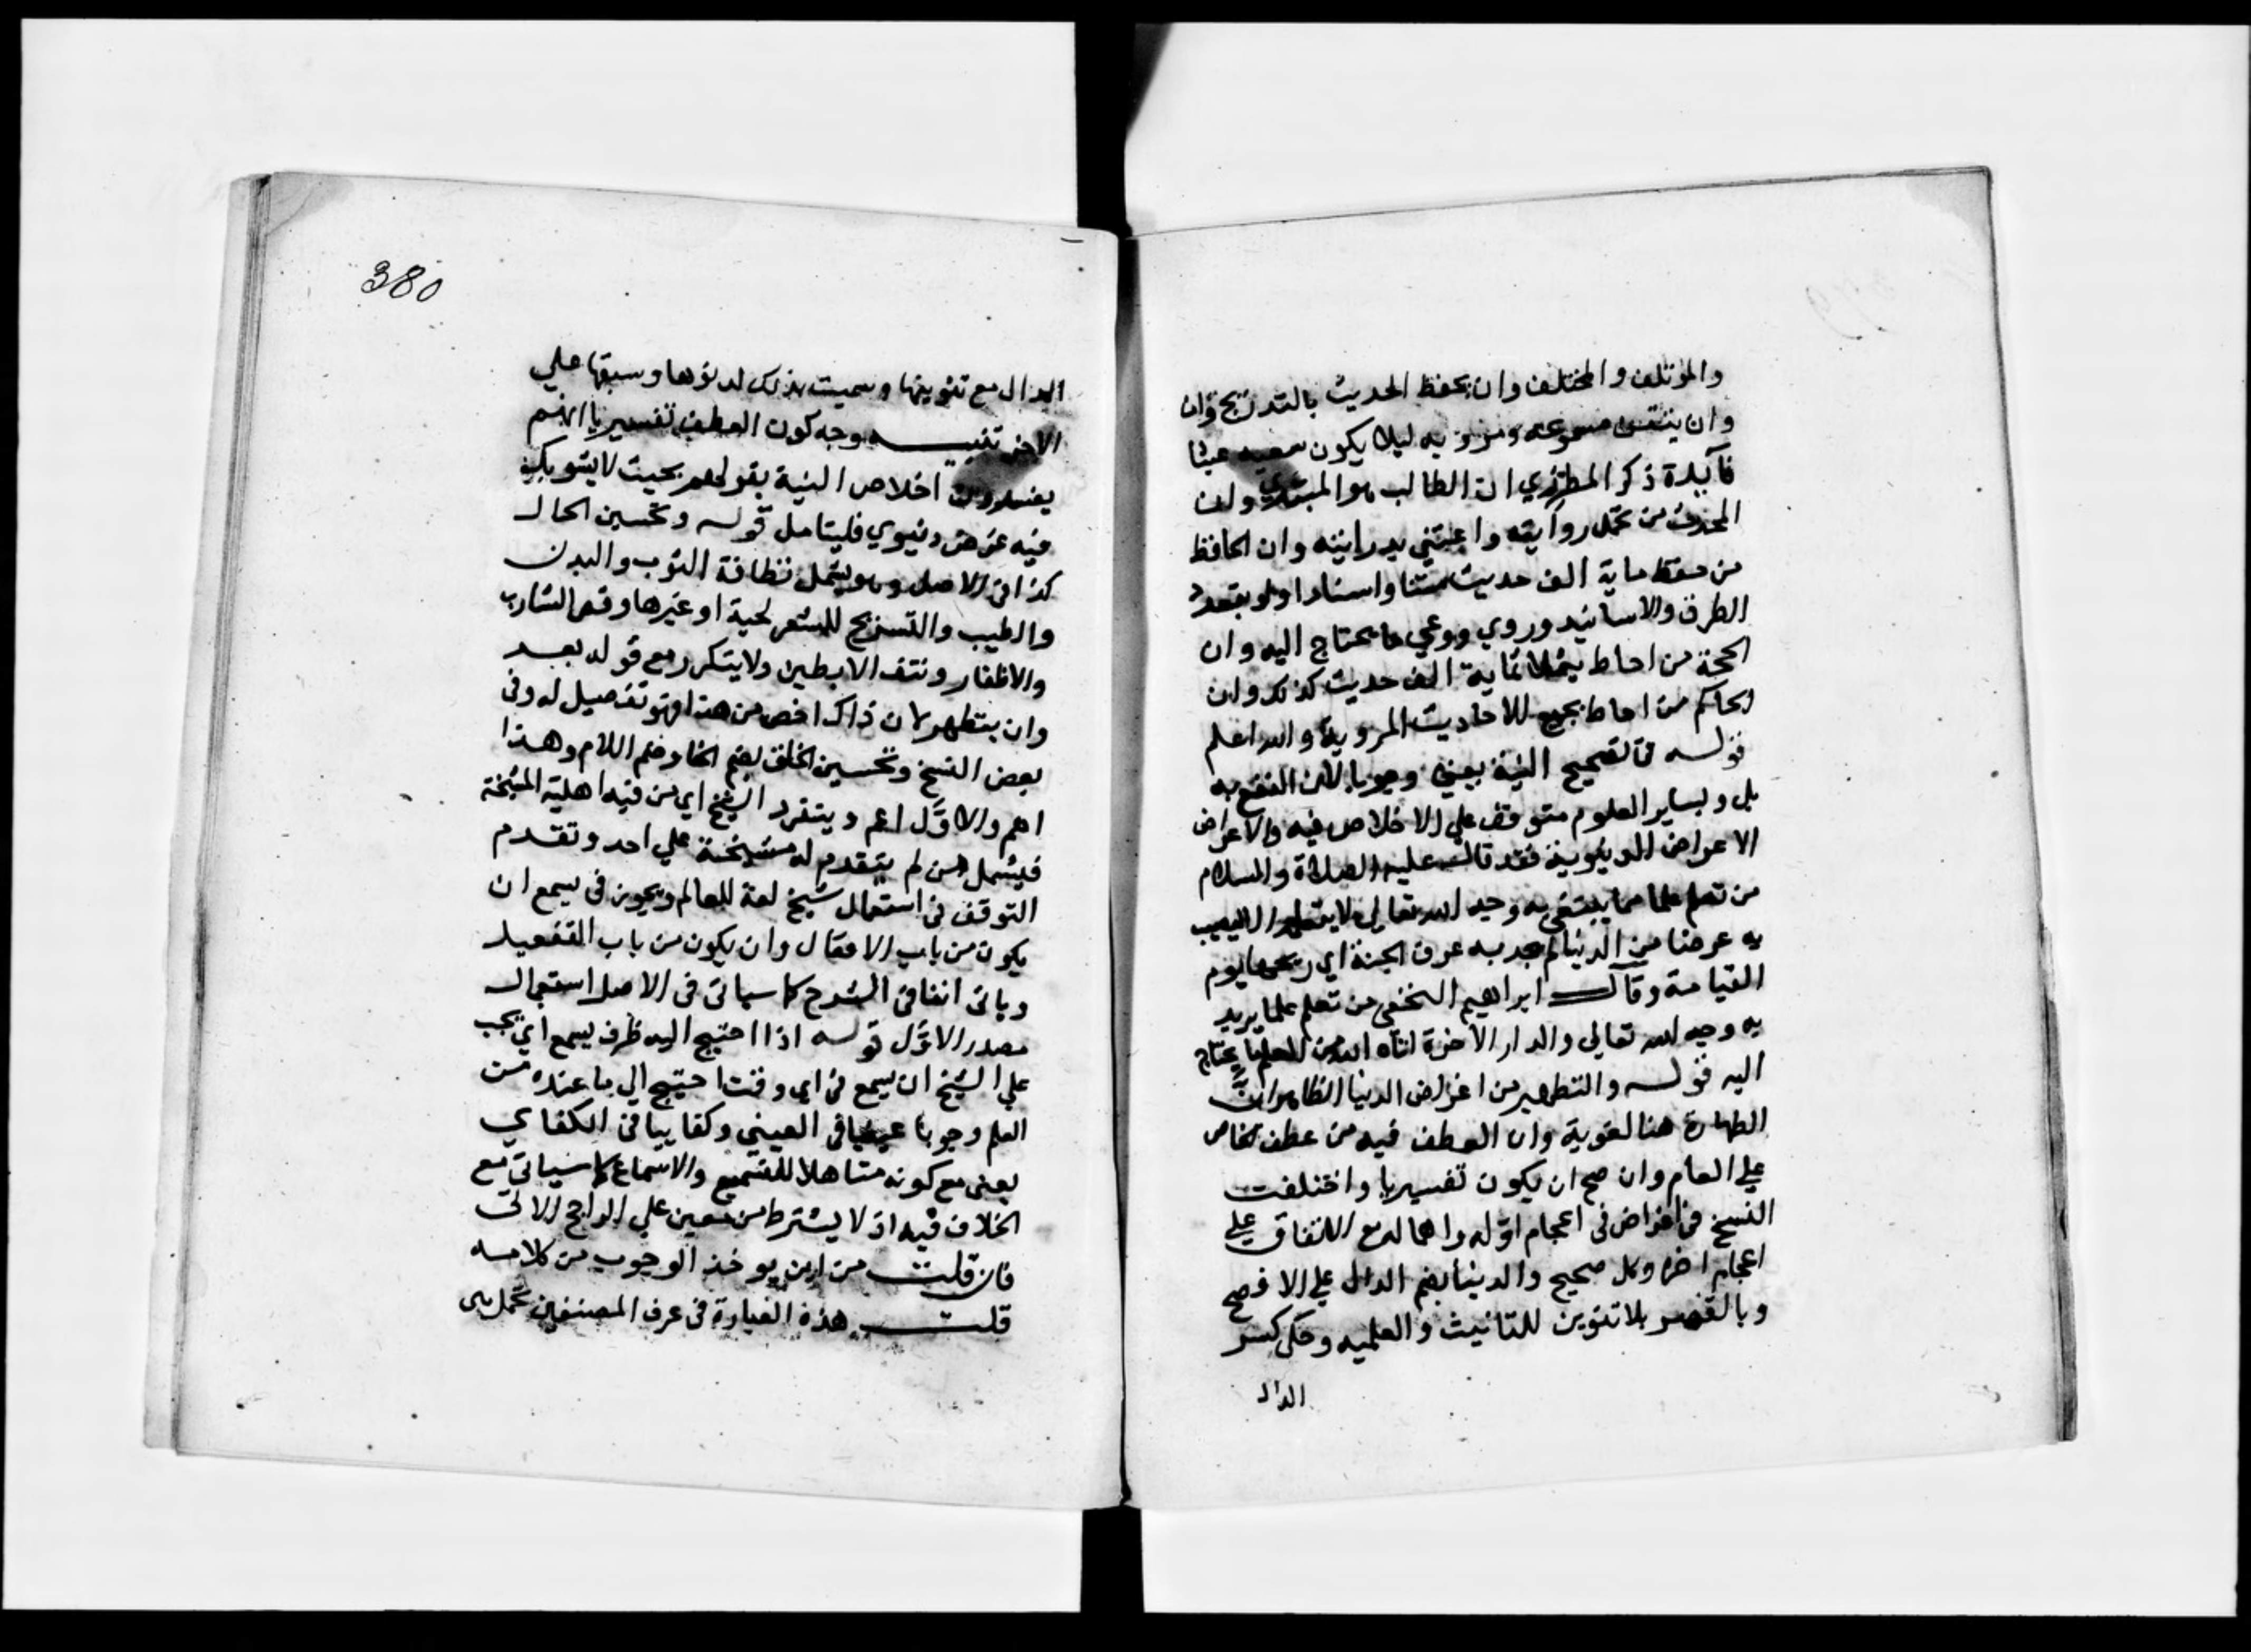 والمؤتلف والمختلف وان يحفظ الحديث بالتدريج وان
وان يتقن مسموعه ومرويه ليلا يكون سعيه عبثا
فآيدة ذكر المطرزي ان الطالب هو المبتدي وان
المحدث من تحمل روايته واعتني بدرايته وان الحافظ
من حفظ ماية الف حديث متنا واسنادا ولو بتعدد
الطرق والاسانيد وروي ووعي ما يحتاج اليه وان
الحجة من احاط بثلاثماية الف حديث كذلك وان
الحاكم من احاط بجميع الاحاديث المروية والله اعلم
قوله في تصحيح النية يعني وجوبا لان النفع به
بل وبساير العلوم متوقف علي الاخلاص فيه والاعراض
الاعراض الدنيوية فقد قال عليه الصلاة والسلام
من تعلم علما مما يبتغي به وجه الله تعالي لا يتعلمه الا ليصيب
به عرضا من الدنيا لم يجد به عرف الجنة اي ريحها يوم
القيامة وقال ابراهيم النخعي من تعلم علما يريد
به وجه الله تعالي والدار الاخرة اتاه الله من العلم ما يحتاج
اليه قوله والتطهير من اغراض الدنيا الظاهر ان
الطهارة هنا لغوية وان العطف فيه من عطف الخاص
علي العام وان صح ان يكون تفسيريا واختلفت
النسخ في اغراض في اعجام اوله واهماله مع الاتفاق علي
اعجام اخره وكل صحيح والدنيا بضم الدال علي الافصح
وبالقصر بلا تنوين للتانيث والعلميه وحكي كسر
الدال
380
الدال مع تنوينها وسميت بذلك لدنوها وسبقها علي
الاخرة تنبيه وجه كون العطف تفسيريا انهم
يفسرون اخلاص النية بقولهم بحيث لا يشوبك
فيه غرض دنيوي فليتامل قوله وتحسين الحال
كذا في الاصل وهو يشمل نظافة الثوب والبدن
والطيب والتسريح للشعر لحية او غيرها وقص الشارب
والاظفار ونتف الابطين ولا يتكرر مع قوله بعد
وان يتطهر لان ذاك اخص من هذا فهو تفصيل له وفي
بعض النسخ وتحسين الخلق بضم الخا وضم اللام وهذا
اهم والاول اعم وينفرد الشيخ اي من فيه اهلية المشيخة
فيشمل من لم يتقدم له مشيخة علي احد وتقدم
التوقف في استعمال شيخ لغة للعالم ويجوز في يسمع ان
يكون من باب الافعال وان يكون من باب التفعيل
وياتي انفا في الشرح كما سياتي في الاصل استعمال
مصدر الاول قوله اذا احتيج اليه ظرف يسمع اي يجب
علي الشيخ ان يسمع في اي وقت احتيج الي ما عنده من
العلم وجوبا عينيا في العيني وكفاييا في الكفاي
يعني مع كونه متاهلا للتسميع والاسماع كما سياتي مع
الخلاف فيه اذ لا يشترط سن معين علي الراجح الاتي
فان قلت من اين يوخذ الوجوب من كلامه
قلت هذه العبارة في عرف المصنفين تحمل علي